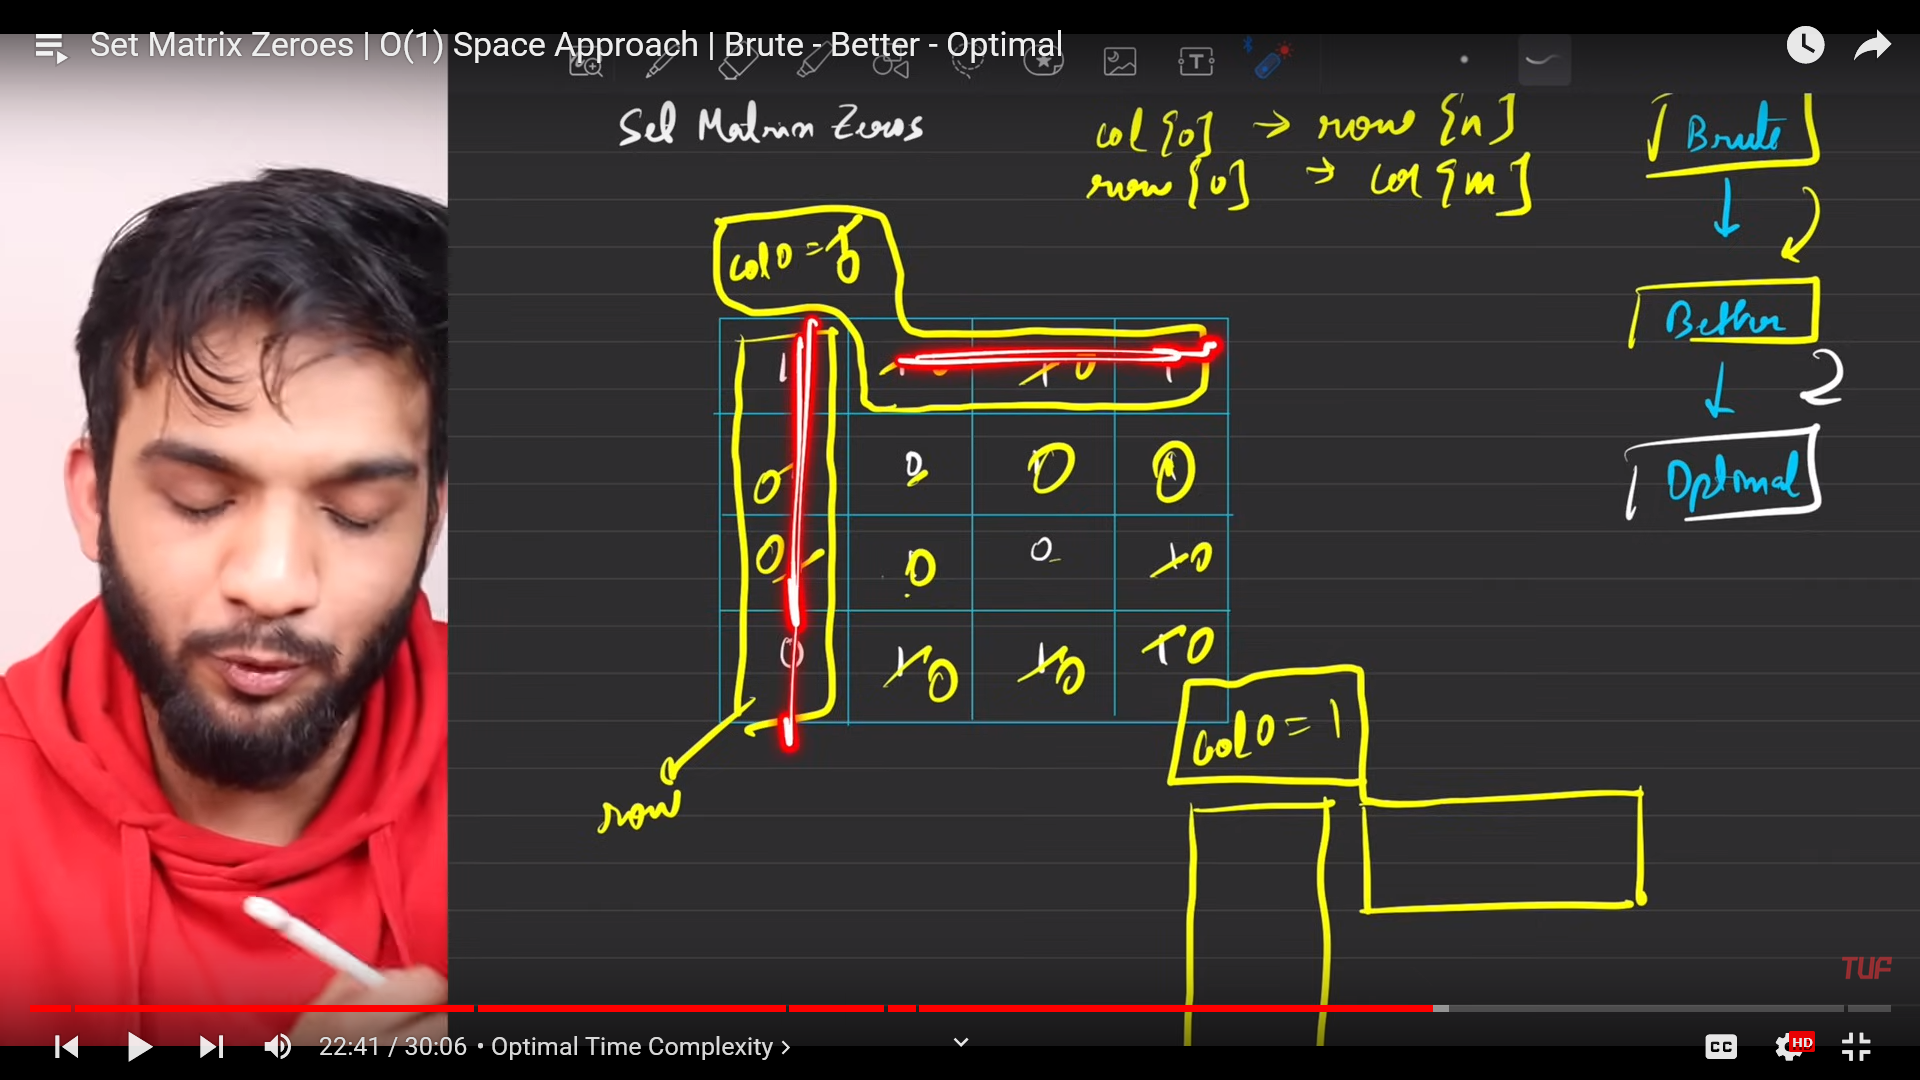 Set Matrix Zeroes | O(1) Space Approach | Brute - Better - Optimal
Set Matrix Zeros
col[0] → row[n]
row[0] → col[m]
Brute
Better
2
Optimal
col0 = 1 0
1 1 0 1 0 1
0 0 0 0
0 0 0 1 0
0 1 0 1 0 1 0
col0 = 1
row
TUF
22:41 / 30:06 • Optimal Time Complexity >
CC
HD